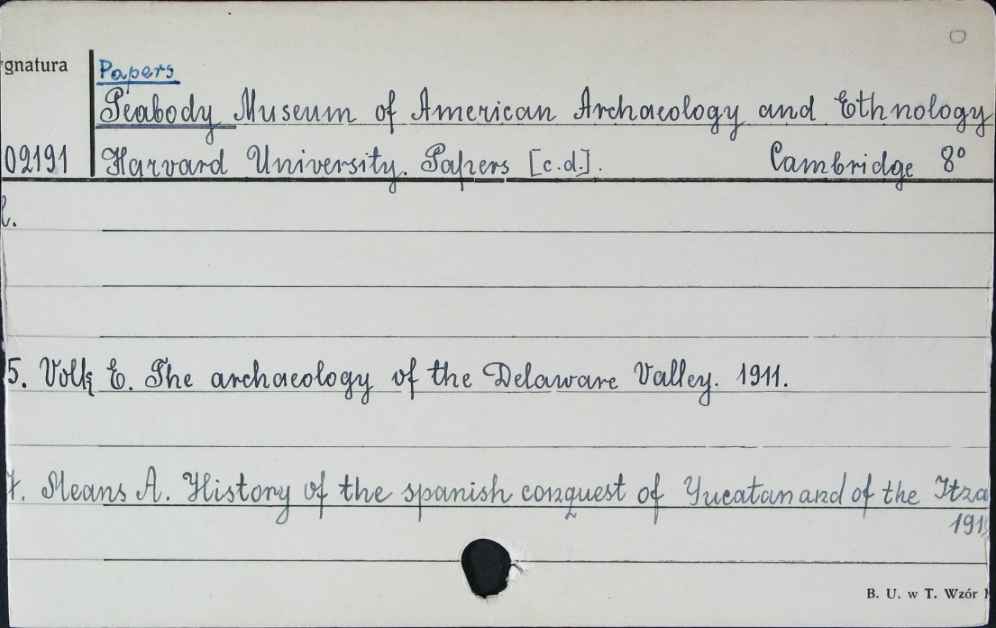 gnatura
Papers
Peabody Museum of American Archaeology and Ethnology
02191 Harvard University. Papers [c.d.]. Cambridge 8°
5. Volk E. The archaeology of the Delaware Valley. 1911.
7. Means A. History of the spanish conquest of Yucatan and of the Itza
191
B. U. w T. Wzór